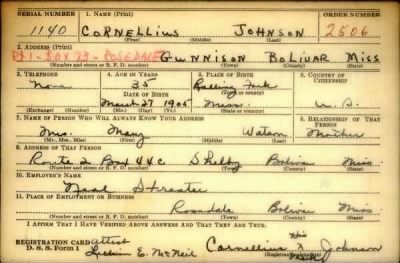 SERIAL NUMBER 1. NAME (Print) ORDER NUMBER
1140 CORNELLIUS JOHNSON 2506
(First) (Middle) (Last)
2. ADDRESS (Print)
GUNNISON BOLIVAR MISS
(Number and street or R. F. D. number) (Town) (County) (State)
3. TELEPHONE 4. AGE IN YEARS 5. PLACE OF BIRTH 6. COUNTRY OF CITIZENSHIP
None 35 Rolling Fork
DATE OF BIRTH (Town or county)
March 27 1905 Miss. U. S.
(Exchange) (Number) (Mo.) (Day) (Yr.) (State or country)
7. NAME OF PERSON WHO WILL ALWAYS KNOW YOUR ADDRESS 8. RELATIONSHIP OF THAT PERSON
Mrs. Mary Watson Mother
(Mr., Mrs., Miss) (First) (Middle) (Last)
9. ADDRESS OF THAT PERSON
Route 2 Box 44C Shelby Bolivar Miss.
(Number and street or R. F. D. number) (Town) (County) (State)
10. EMPLOYER'S NAME
Neal
11. PLACE OF EMPLOYMENT OR BUSINESS
Rosedale Bolivar Miss.
(Number and street or R. F. D. number) (Town) (County) (State)
I AFFIRM THAT I HAVE VERIFIED ABOVE ANSWERS AND THAT THEY ARE TRUE.
REGISTRATION CARD Attest his
D. S. S. Form 1 E. McNeil Cornellius X Johnson
mark